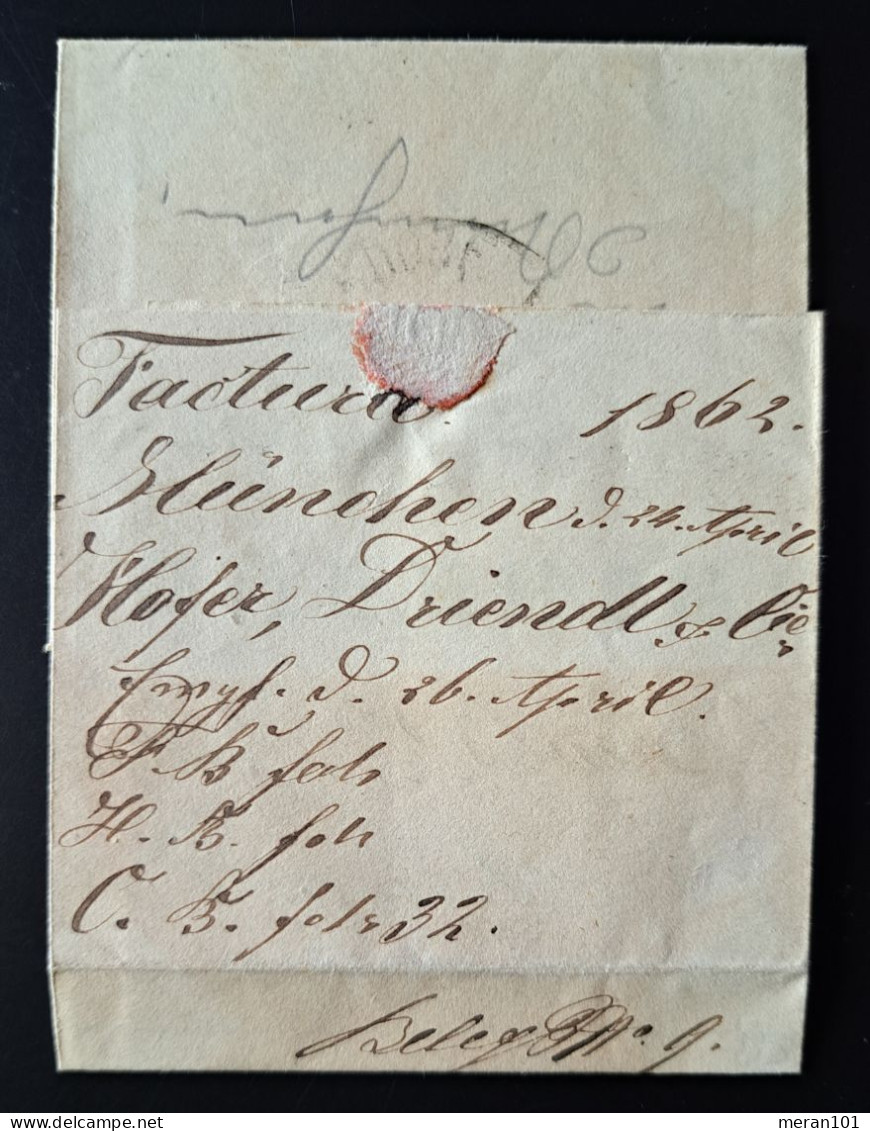 Factura. 1862.
München d. 24. April
Hofer, Driendl & Cie
Empf. d. 26. April.
F. B. fol:
H. B. fol:
C. B. fol: 32.
Beleg No. 9.
delcampe.net
meran101